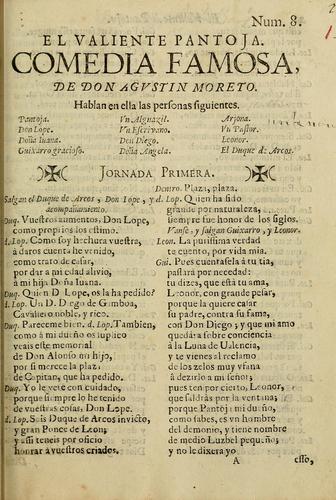 Num. 8.
EL VALIENTE PANTOJA.
COMEDIA FAMOSA,
DE DON AGVSTIN MORETO.
Hablan en ella las personas siguientes.
Pantoja. Vn Alguazil. Arjona.
Don Lope. Vn Escrivano. Vn Pastor.
Doña Iuana. Don Diego. Leonor.
Guixarro gracioso. Doña Angela. El Duque de Arcos.
JORNADA PRIMERA.
Salgan el Duque de Arcos, Don Lope, y
acompañamiento.
Duq. Vuestros aumentos, Don Lope,
como propios los estimo.
d. Lop. Como soy hechura vuestra,
á daros cuenta he venido,
como trato de casar,
por dar a mi edad alivio,
á mi hija Doña Iuana.
Duq. Quien D. Lope, os la ha pedido?
d. Lop. Un D. Diego de Gamboa,
Cavallero noble, y rico.
Duq. Pareceme bien. d. Lop. Tambien,
como á mi dueño os suplico
veais este memorial
de Don Alonso mi hijo,
por si merece la plaza
de Capitan, que ha pedido.
Duq. Yo le veré con cuidado,
porque siempre lo he tenido
de vuestras cosas, Don Lope.
d. Lop. Sois Duque de Arcos invicto,
y gran Ponce de Leon;
y assi teneis por oficio
honrar à vuestros criados.
Dentro. Plaza, plaza.
d. Lop. Quien ha sido
grande por naturaleza,
siempre fue honor de los siglos.
Vanse, y salgan Guixarro, y Leonor.
Leon. La purissima verdad
te cuento, por vida mia.
Gui. Pues cuentasela à tu tia,
passarà por necedad:
tu dizes, que està tu ama,
Leonor, con grande pesar,
porque la quiere casar
su padre, contra su fama,
con Don Diego; y que mi amo
quedára sobre conciencia
à la Luna de Valencia,
y te vienes al reclamo
de los zelos muy vfana
à dezirlo a mi señor;
pues ten por cierto, Leonor,
que saldràs por la ventana;
porque Pantoja mi dueño,
como sabes, es vn hombre
del demonio, y tiene nombre
de medio Luzbel pequeño;
y no le dixera yo
A esso,